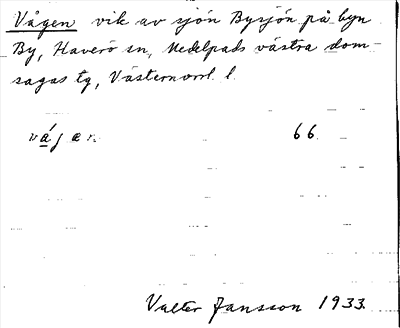 Vågen vik av sjön Bysjön på byn
By, Haverö sn, Medelpads västra dom-
sagas tg, Västernorrl. l.
66.
Valter Jansson 1933.